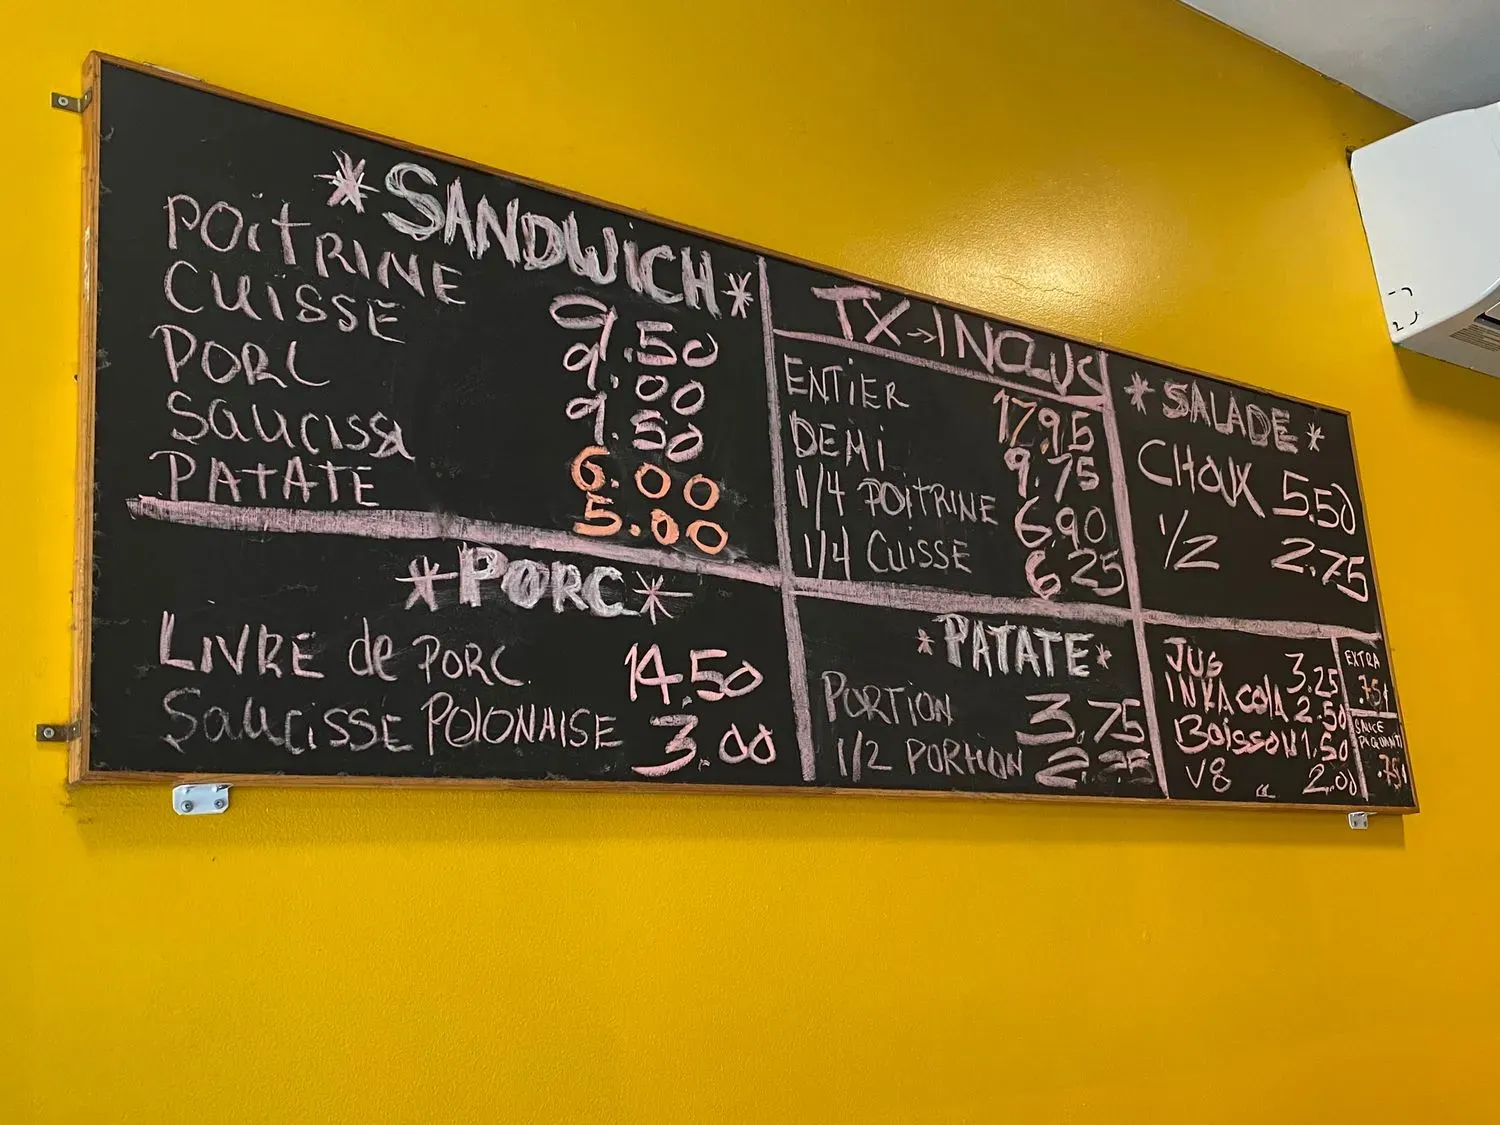 *SANDWICH*
POITRINE 9.50
CUISSE 9.00
PORC 9.50
SAUCISSE 6.00
PATATE 5.00
*PORC*
LIVRE de PORC 14.50
SAUCISSE POLONAISE 3.00
TX→INCLUS
ENTIER 17.95
DEMI 9.75
1/4 POITRINE 6.90
1/4 CUISSE 6.25
*PATATE*
PORTION 3.75
1/2 PORTION 2.25
*SALADE*
CHOUX 5.50
1/2 2.75
JUS 3.25
INKA COLA 2.50
BOISSON 1.50
V8 " 2.00
EXTRA
.75¢
SAUCE
.75¢